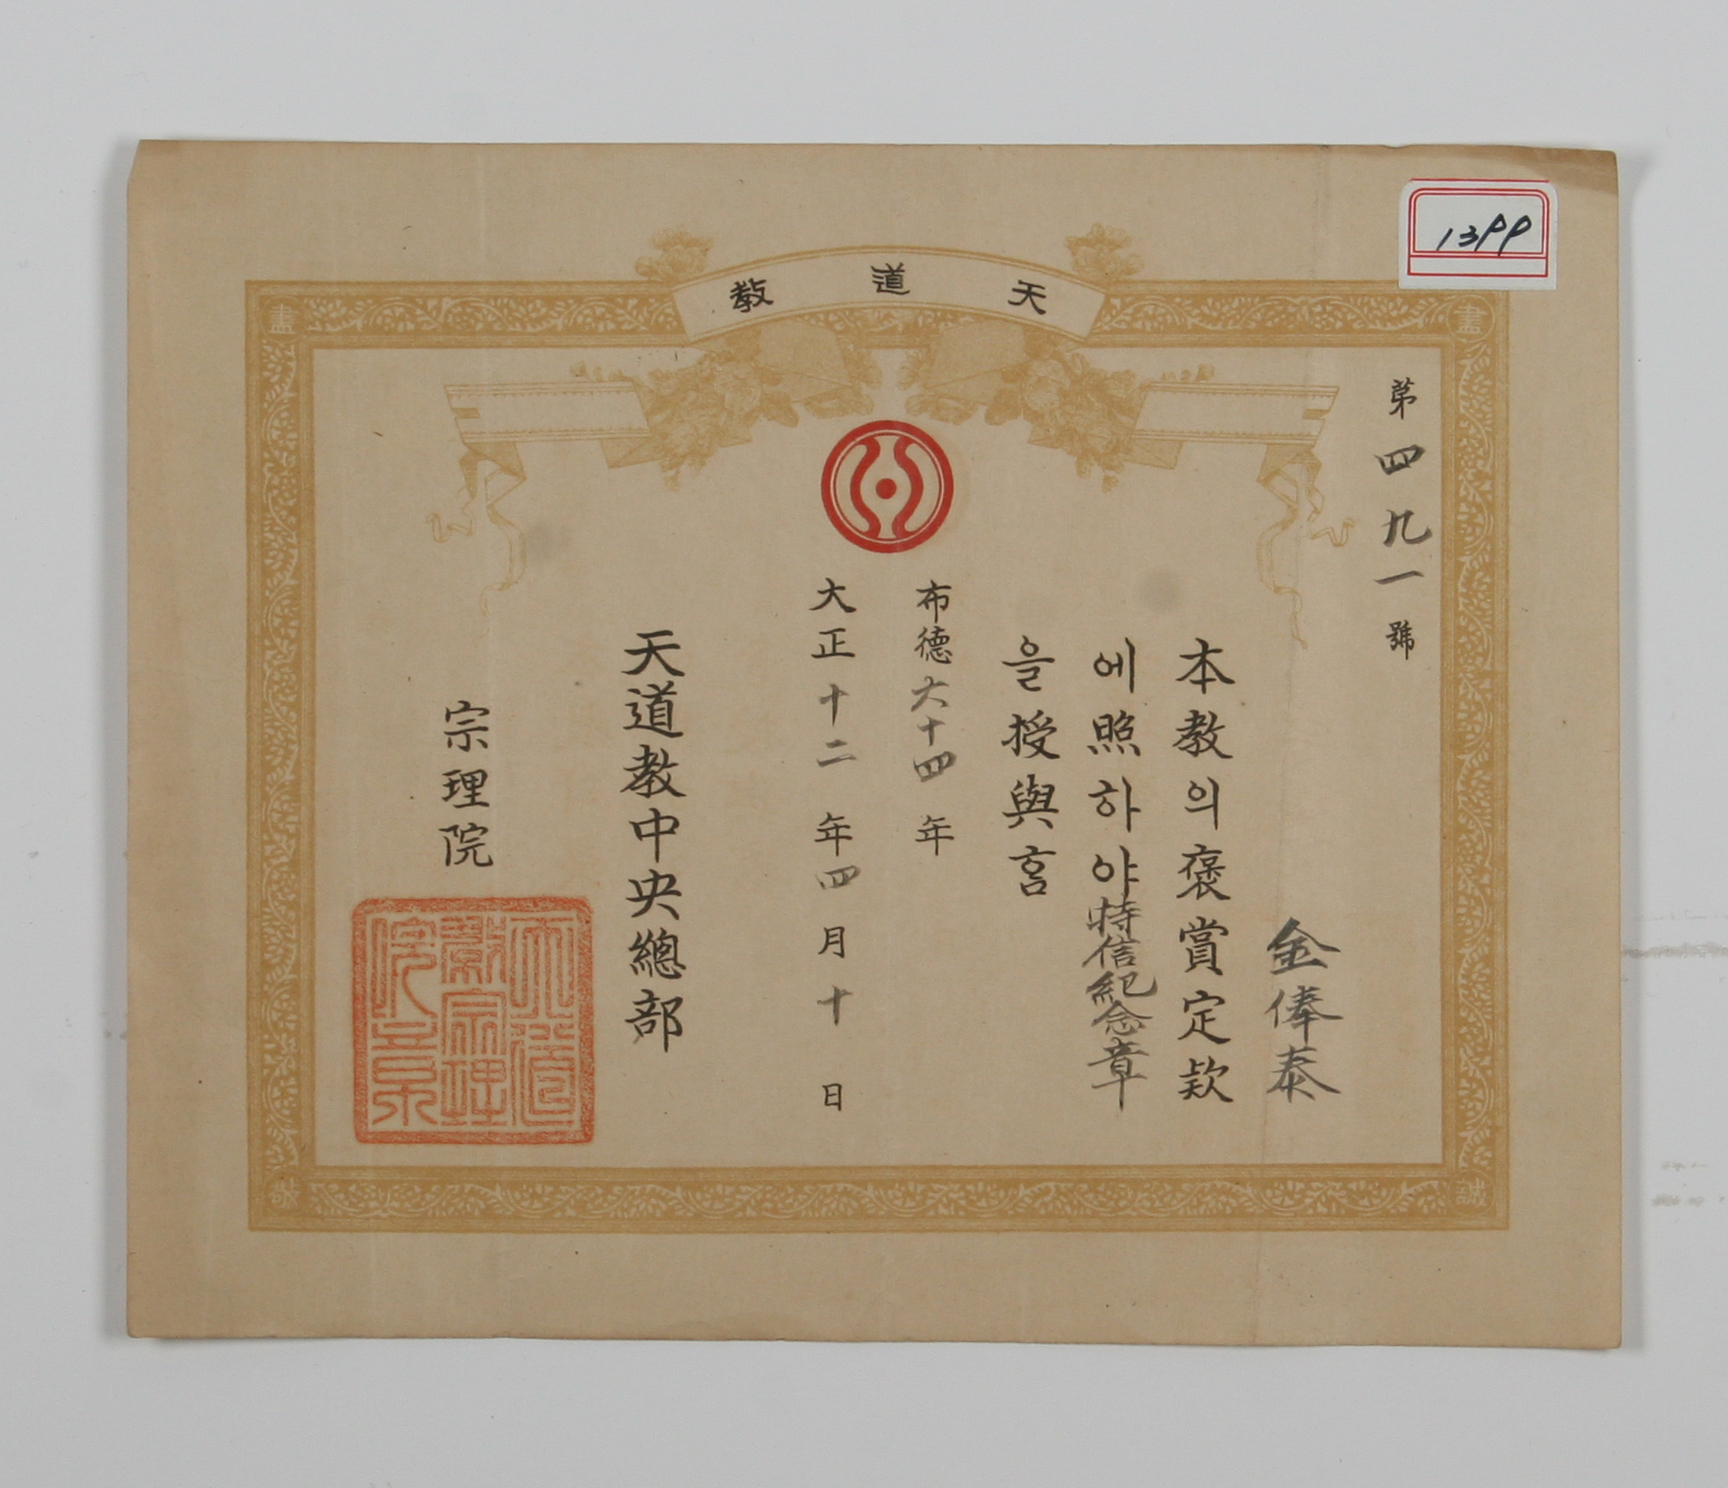 1399
天道敎
第四九一號
金俸泰
本敎의褒賞定欵
에照하야特信紀念章
을授與ᄒᆞᆷ
布德六十四年
大正十二年四月十日
天道敎中央總部
宗理院
天道
敎宗理
誠